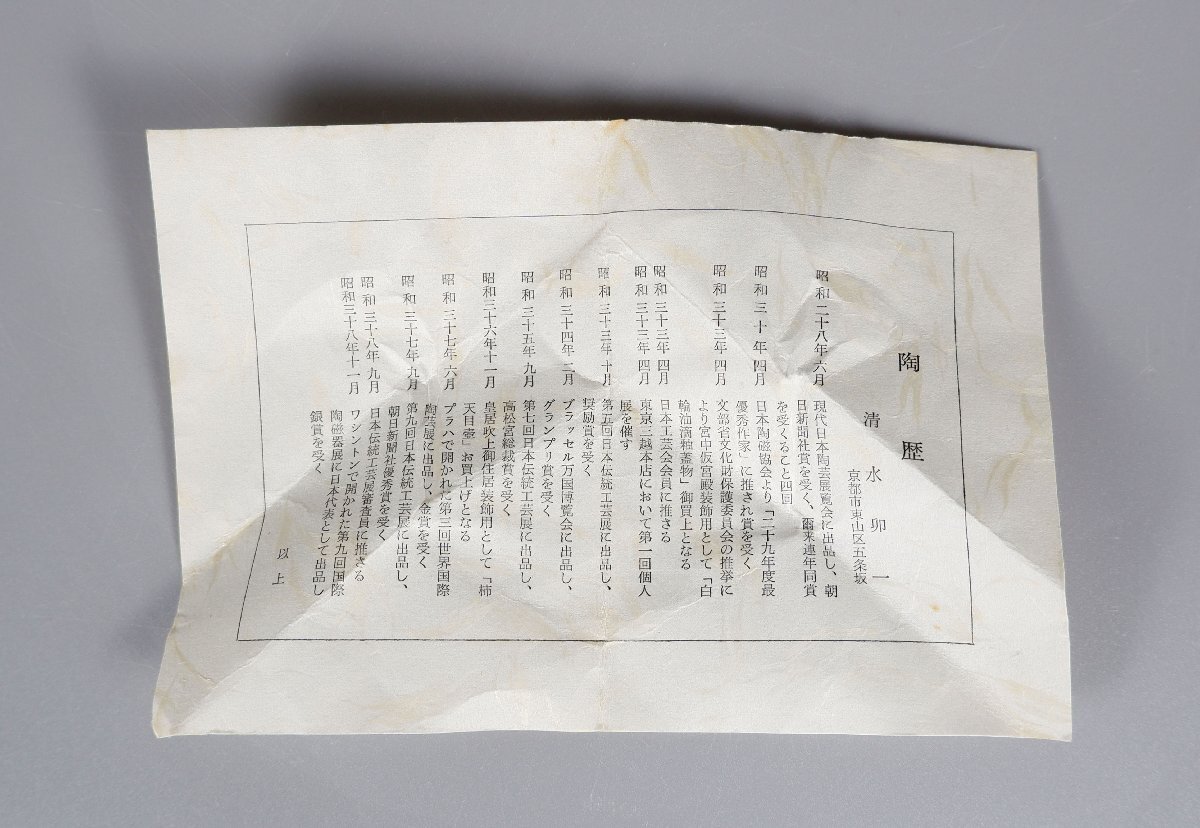 陶歴
清水卯一
京都市東山区五条坂
昭和二十八年六月 現代日本陶芸展覧会に出品し、朝
日新聞社賞を受く、爾来連年同賞
を受くること四回
昭和三十年四月 日本陶磁協会より「二十九年度最
優秀作家」に推され賞を受く
昭和三十三年四月 文部省文化財保護委員会の推挙に
より宮中仮宮殿装飾用として「白
釉油滴釉蓋物」御買上となる
昭和三十三年四月 日本工芸会会員に推さる
昭和三十三年四月 東京三越本店において第一回個人
展を催す
昭和三十三年十月 第五回日本伝統工芸展に出品し、
奨励賞を受く
昭和三十四年二月 ブラッセル万国博覧会に出品し、
グランプリ賞を受く
昭和三十五年九月 第七回日本伝統工芸展に出品し、
高松宮総裁賞を受く
昭和三十六年十一月 皇居吹上御住居装飾用として「柿
天目壺」お買上げとなる
昭和三十七年六月 プラハで開かれた第三回世界国際
陶芸展に出品し、金賞を受く
昭和三十七年九月 第九回日本伝統工芸展に出品し、
朝日新聞社優秀賞を受く
昭和三十八年九月 日本伝統工芸展審査員に推さる
昭和三十八年十一月 ワシントンで開かれた第九回国際
陶磁器展に日本代表として出品し
銀賞を受く
以上